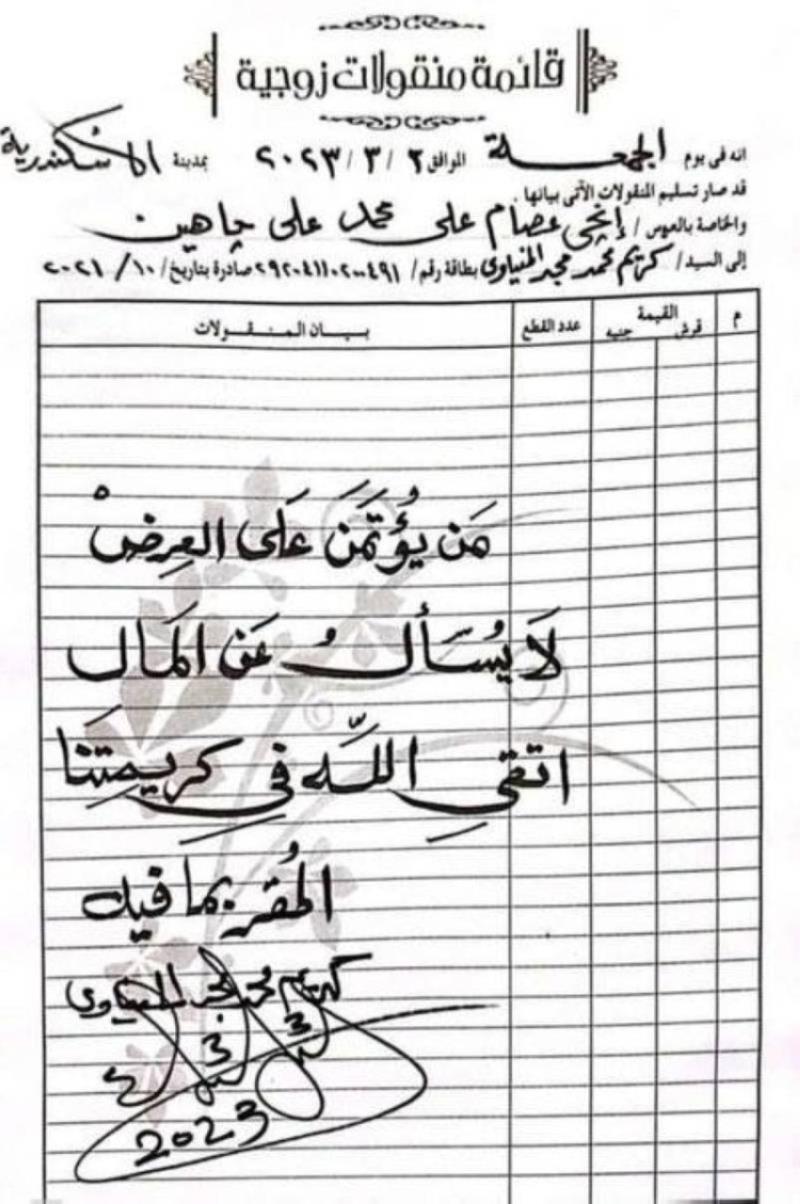 قائمة منقولات زوجية
انه فى يوم الجمعة الموافق ٣ / ٣ / ٢٠٢٣ بمدينة الاسكندرية
قد صار تسليم المنقولات الآتى بيانها
والخاصة بالعروس / إنجى عصام على محمد على چاهين
إلى السيد / كريم محمد مجد المنياوى بطاقة رقم / صادرة بتاريخ / ١٠ / ٢٠٢١
م القيمة عدد القطع بيـــان المـنـقـــولات
قرش جنيه
مَن يُؤتَمَنَ عَلى العِرضْ
لَا يُسَألُ عَن المَال
اتقىِ اللّه فىِ كريمتنَا
المُقر بما فيه
كريم محمد مجد المنياوي
3
3
2023